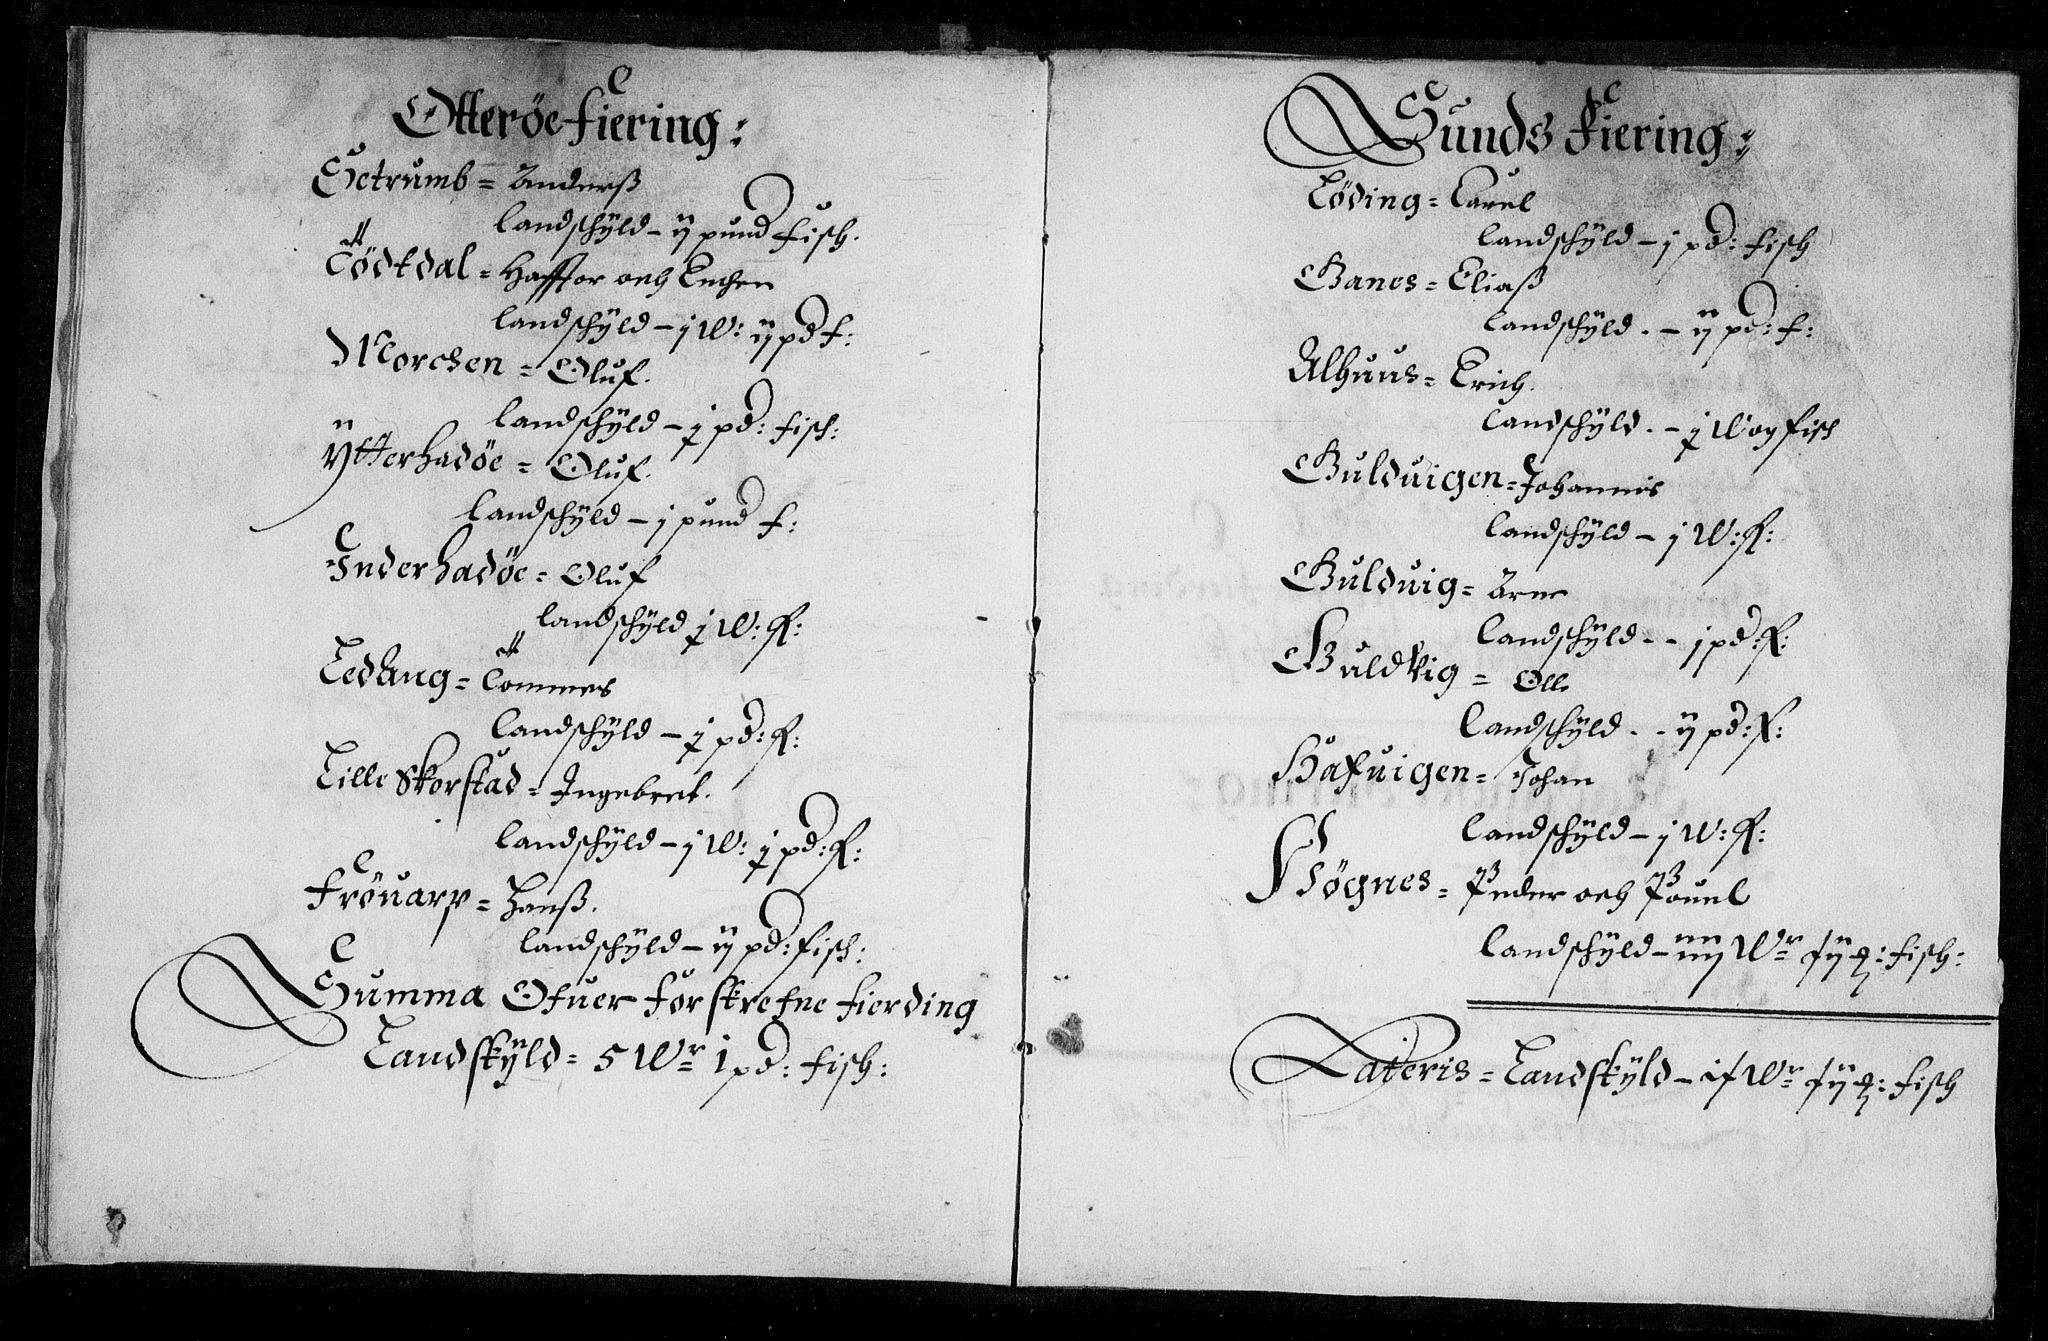 Otterøe fiering:
Setrumb = Anderß
landschÿld – ij pund fisch.
Tödtdal = Hafftor och Enchen
landschÿld – j W: ij pd f:
Morchen = Oluf.
landschÿld – j pd: fisch:
Ytterhadöe = Oluf.
landschÿld – j pund f:
Inderhadöe = Oluf
landschÿld j W: f:
Ledang = Tommes
landschÿld – j pd: f:
Lille Skorstad = Ingebret.
landschÿld – j W: j pd: f:
Fröuarp = Hanß.
landschÿld – ij pd: fisch:
Summa Ofuer forskrefne fierding
Landskÿld = 5 Wr 1 pd: fisch:
Sunds Fiering:
Löding = Lauel
landschÿld – j pd: fisch
Banes = Eliaß
landschÿld . – ij pd: f:
Alhuus = Erich.
landschÿld . – j Wog fisch
Bulduigen = Johannis
landschÿld – j W: f:
Bulduig = Arne
landschÿld - - j pd: f:
Buldvig = Olle
landschÿld . - ij pd: f:
Hafuigen = Johan
landschÿld – j W: f:
Högnes = Peder och Pouel
landschÿld – iiij Wr fisch:
Lateris = Landskÿld – Wr fisch